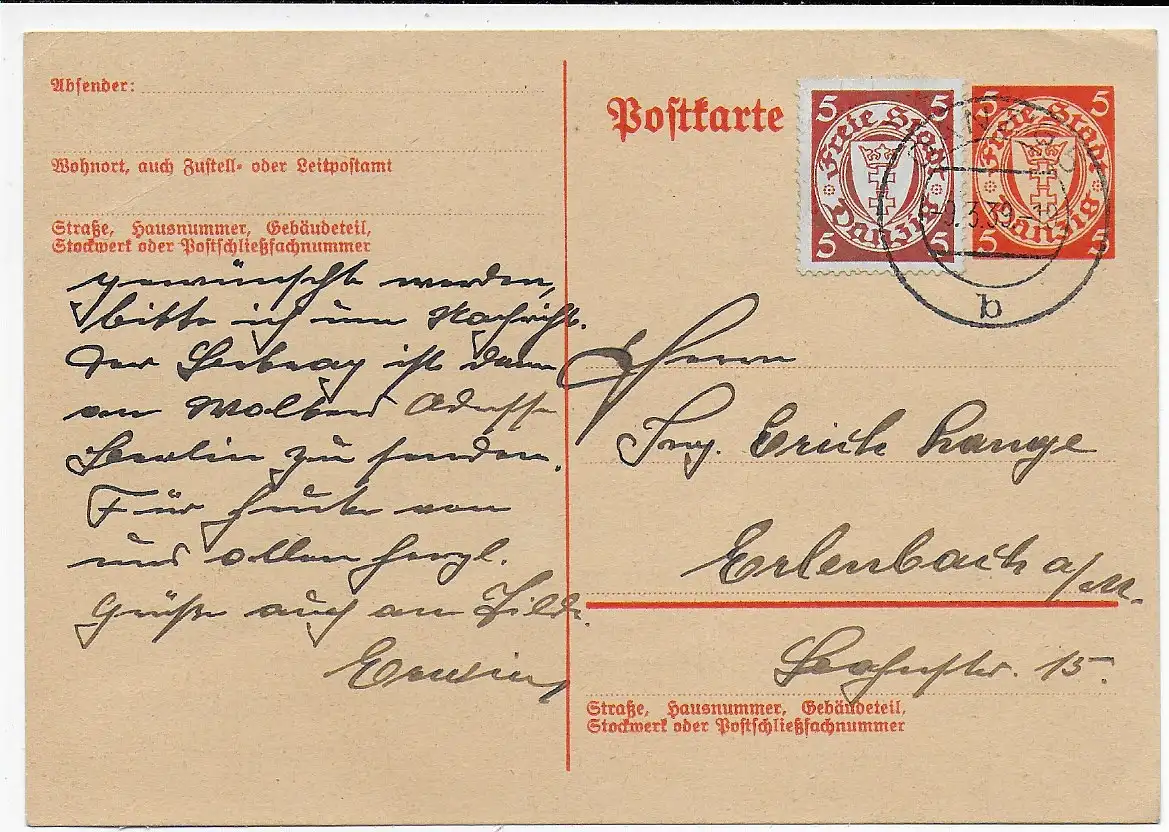 Absender:
Wohnort, auch Zustell- oder Leitpostamt
Straße, Hausnummer, Gebäudeteil,
Stockwerk oder Postschließfachnummer
gewünscht werden,
bitte ich um Nachricht.
Der Betrag ist dann
an Adresse
Berlin zu senden.
Für heute von
uns allen herzl.
Grüße auch an Hilde.
Erwin
Postkarte
5 5
Freie Stadt
Danzig
5 5
5 5
Freie Stadt
Danzig
5
3.39
b
Herrn
Ing. Erich Lange
Erlenbach a/M.
Bahnstr. 15.
Straße, Hausnummer, Gebäudeteil,
Stockwerk oder Postschließfachnummer